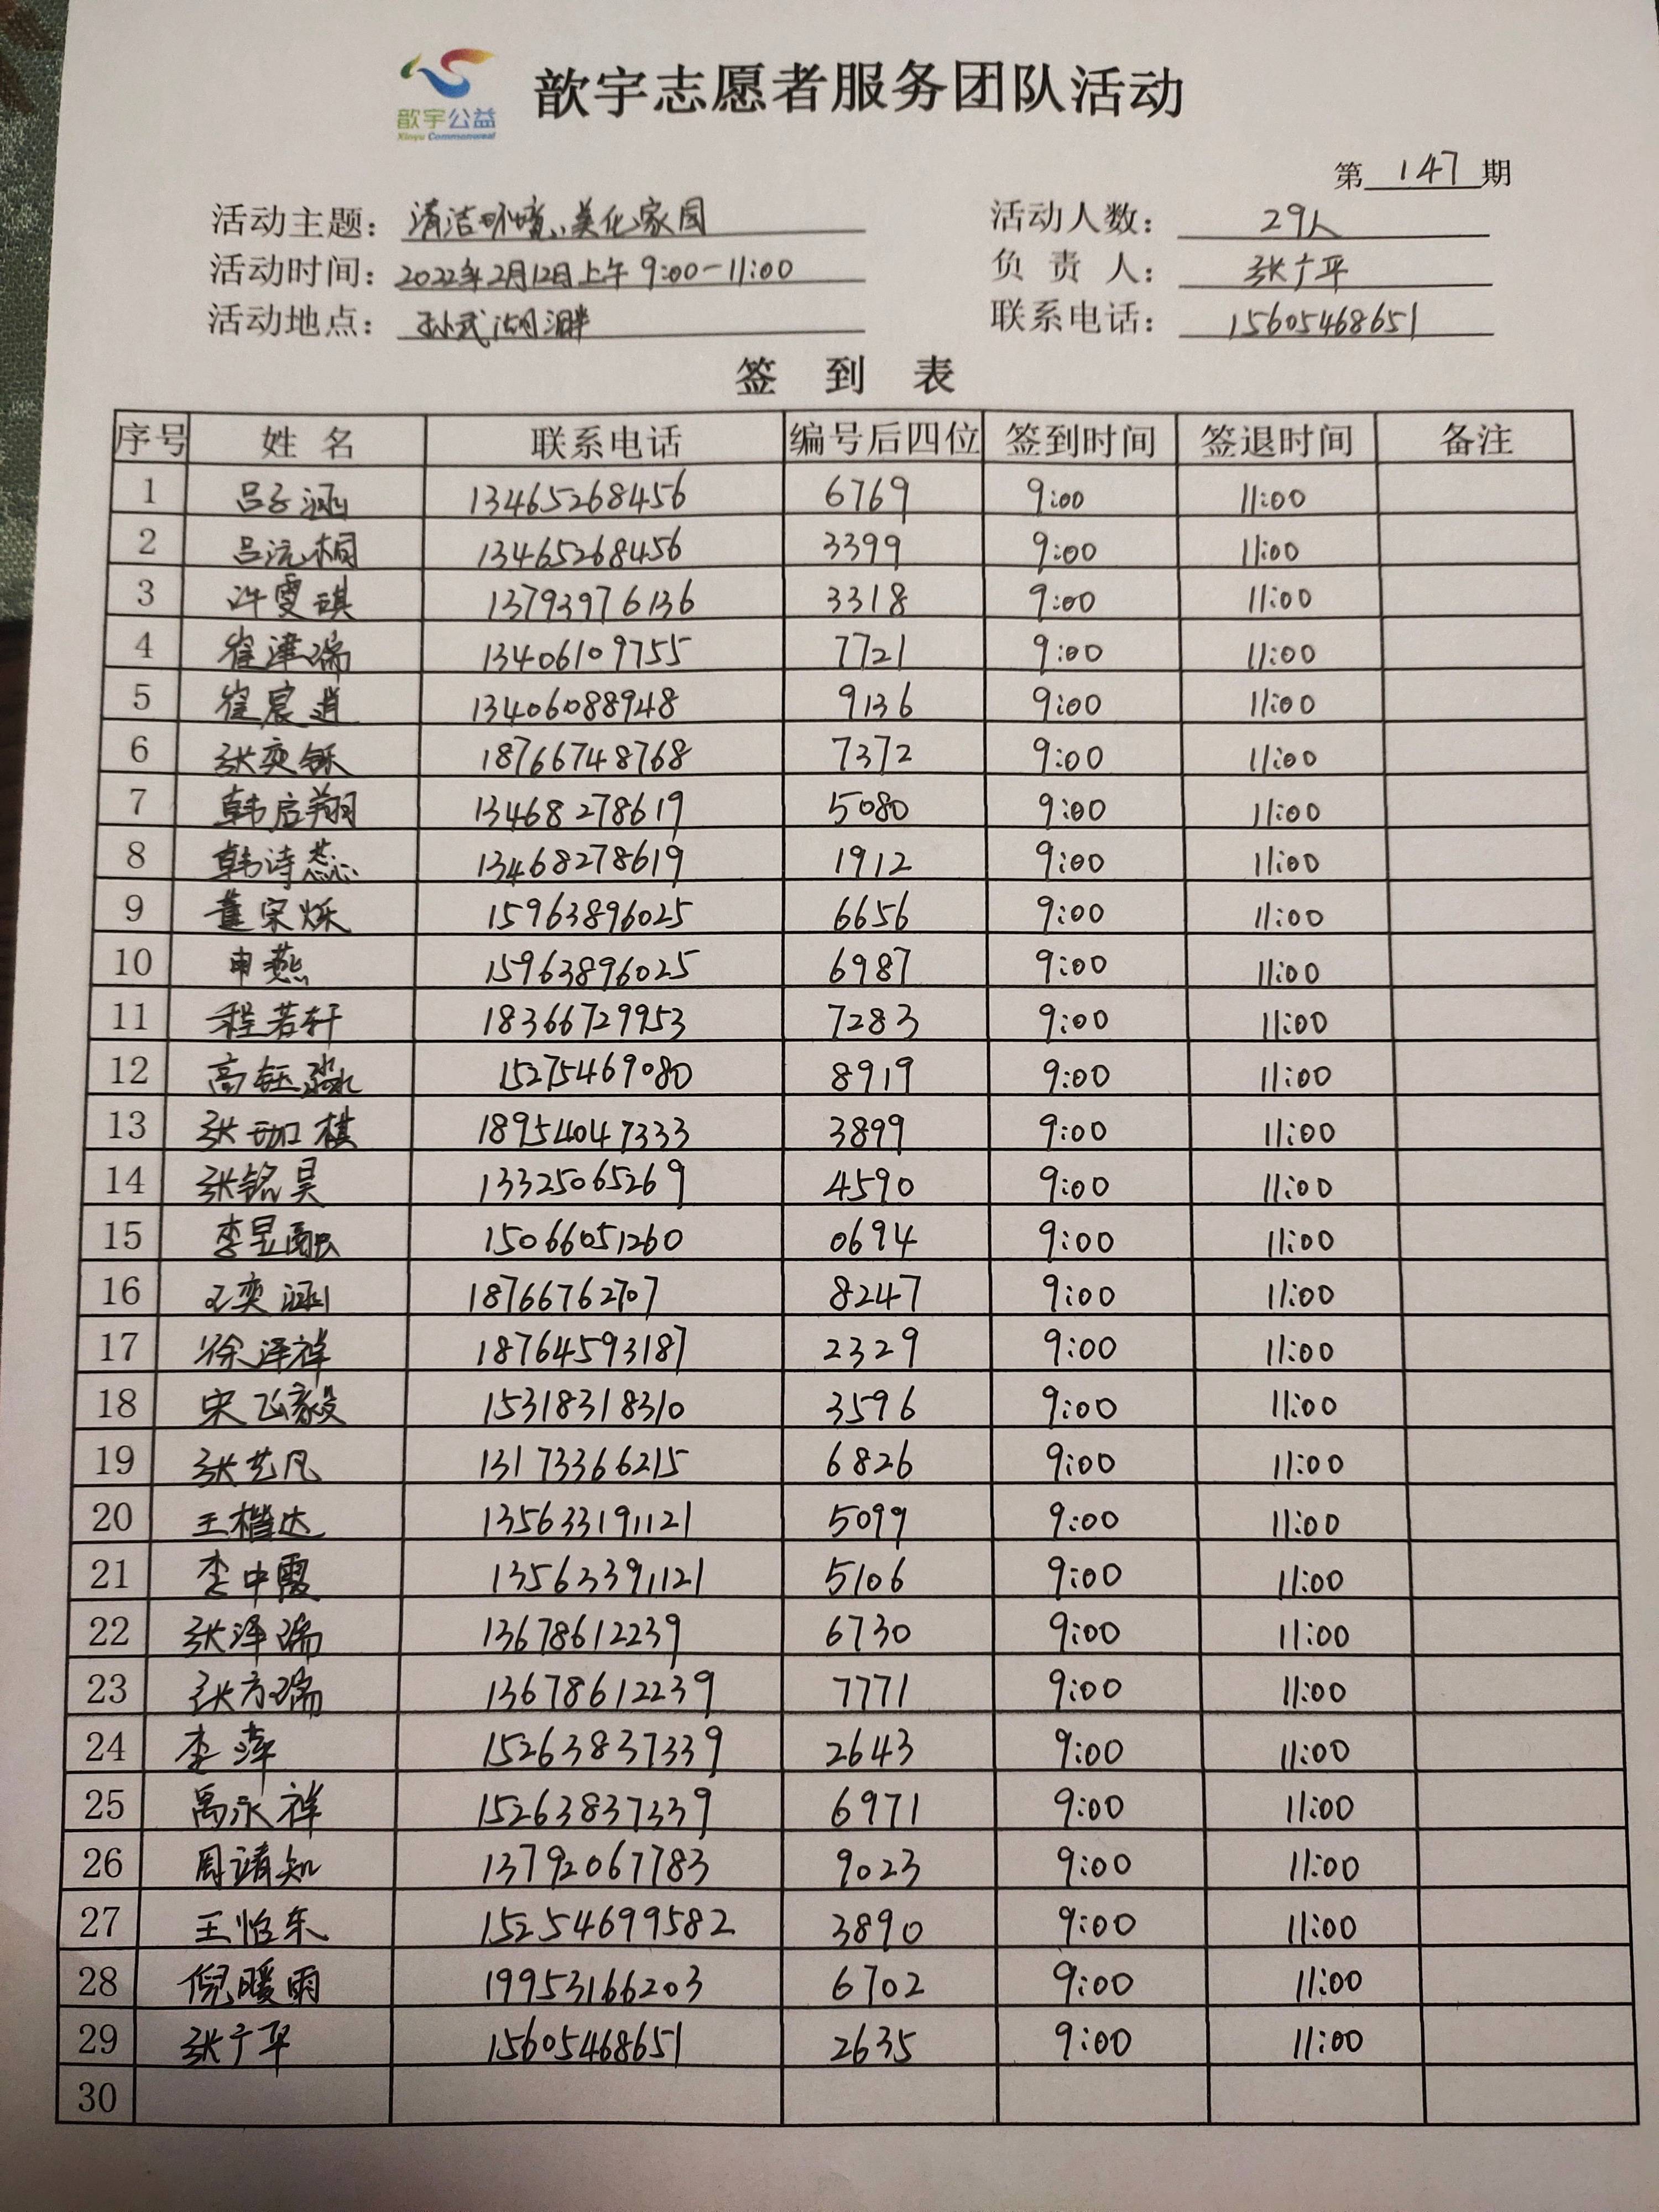 歆宇公益
Xinyu Commonweal
歆宇志愿者服务团队活动
第 147 期
活动主题: 清洁环境,美化家园 活动人数: 29人
活动时间: 2022年2月12日上午 9:00-11:00 负责人: 张广平
活动地点: 孙武湖畔 联系电话: 15605468651
签到表
序号 姓名 联系电话 编号后四位 签到时间 签退时间 备注
1 吕子涵 13465268456 6769 9:00 11:00
2 吕沅桐 13465268456 3399 9:00 11:00
3 许雯琪 13793976136 3318 9:00 11:00
4 崔津瑞 13406109755 7721 9:00 11:00
5 崔宸逍 13406088948 9136 9:00 11:00
6 张奕铄 18766748768 7372 9:00 11:00
7 韩启翔 13468278619 5080 9:00 11:00
8 韩诗蕊 13468278619 1912 9:00 11:00
9 董宋烁 15963896025 6656 9:00 11:00
10 申燕 15963896025 6987 9:00 11:00
11 程若轩 18366729953 7283 9:00 11:00
12 高钰淼 15275469080 8919 9:00 11:00
13 张珈棋 18954047333 3899 9:00 11:00
14 张铭昊 13325065269 4590 9:00 11:00
15 李昱融 15066051260 0694 9:00 11:00
16 王奕涵 18766762707 8247 9:00 11:00
17 徐泽祥 18764593187 2329 9:00 11:00
18 宋飞毅 15318318310 3596 9:00 11:00
19 张艺凡 13173366215 6826 9:00 11:00
20 王楷达 135633191121 5099 9:00 11:00
21 李中霞 13563391121 5106 9:00 11:00
22 张泽瑞 13678612239 6730 9:00 11:00
23 张方瑞 13678612239 7771 9:00 11:00
24 李萍 15263837339 2643 9:00 11:00
25 禹永祥 15263837339 6971 9:00 11:00
26 周靖知 13792067783 9023 9:00 11:00
27 王怡东 15254699582 3890 9:00 11:00
28 倪暖雨 19953166203 6702 9:00 11:00
29 张广平 15605468651 2635 9:00 11:00
30